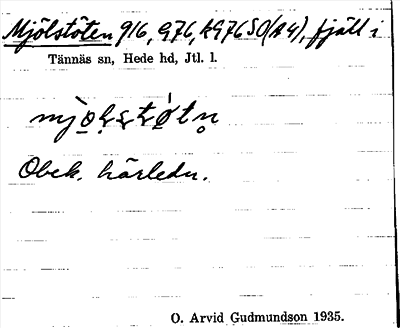 Mjölstöten 916, G76, kG76SO(R4), fjäll i
Tännäs sn, Hede hd, Jtl. l.
Obek. härledn.
O. Arvid Gudmundson 1935.